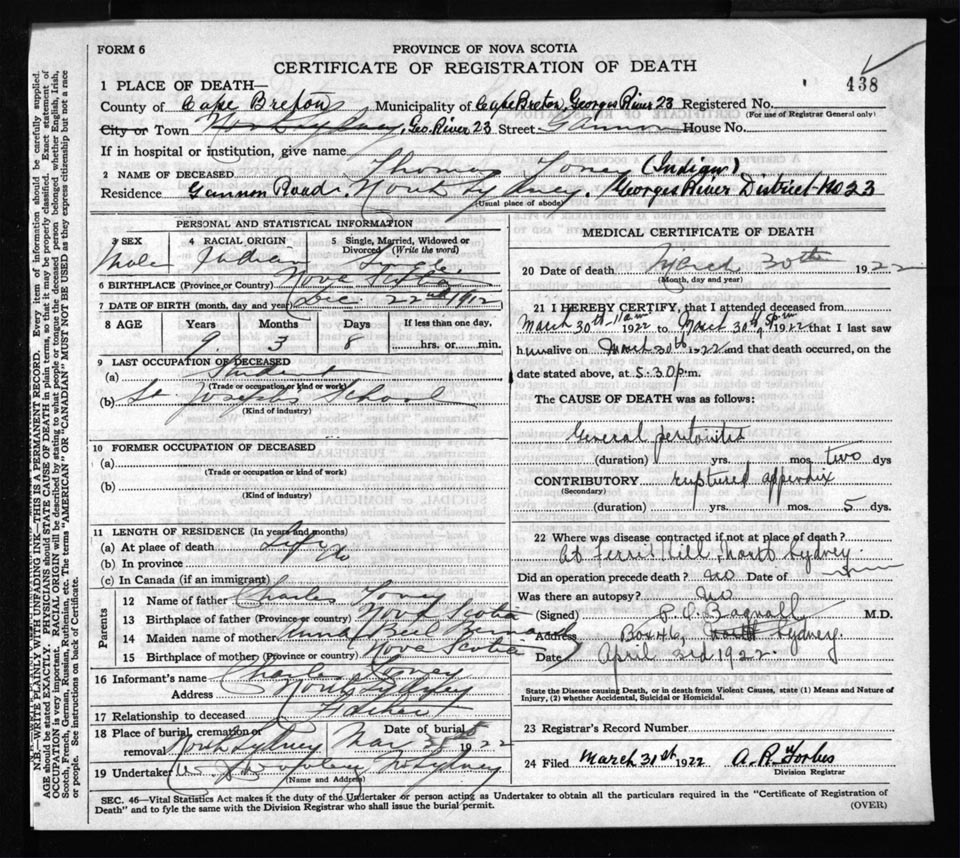 FORM 6
PROVINCE OF NOVA SCOTIA
CERTIFICATE OF REGISTRATION OF DEATH
438
1 PLACE OF DEATH—
County of Cape Breton Municipality of Cape Breton, Georges River 23 Registered No.
(For use of Registrar General only)
City or Town North Sydney, Geo. River 23 Street Gannon House No.
If in hospital or institution, give name
2 NAME OF DECEASED Thomas Toney (Indian)
Residence Gannon Road, North Sydney. Georges River District No 23
(Usual place of abode)
PERSONAL AND STATISTICAL INFORMATION
3 SEX 4 RACIAL ORIGIN 5 Single, Married, Widowed or Divorced (Write the word)
Male Indian Single
6 BIRTHPLACE (Province or Country) Nova Scotia
7 DATE OF BIRTH (month, day and year) Dec. 22nd 1912
8 AGE Years Months Days If less than one day,
9 3 8 hrs. or min.
9 LAST OCCUPATION OF DECEASED
(a) Student
(Trade or occupation or kind or work)
(b) St. Josephs School
(Kind of industry)
10 FORMER OCCUPATION OF DECEASED
(a)
(Trade or occupation or kind of work)
(b)
(Kind of industry)
11 LENGTH OF RESIDENCE (In years and months)
(a) At place of death Life
(b) In province do
(c) In Canada (if an immigrant)
Parents
12 Name of father Charles Toney
13 Birthplace of father (Province or country) Nova Scotia
14 Maiden name of mother Anna Bell
15 Birthplace of mother (Province or country) Nova Scotia
16 Informant's name Charles Toney
Address North Sydney
17 Relationship to deceased Father
18 Place of burial, cremation or removal North Sydney Date of burial Mar 31st 1922
19 Undertaker N Sydney
(Name and Address)
MEDICAL CERTIFICATE OF DEATH
20 Date of death March 30th 1922
(Month, day and year)
21 I HEREBY CERTIFY, that I attended deceased from
March 30th 11am 1922 to March 30th, 5pm 1922 that I last saw
him alive on March 30th 1922 and that death occurred, on the
date stated above, at 5.30 p.m.
The CAUSE OF DEATH was as follows:
General peritonitis
(duration) yrs. mos. two dys
CONTRIBUTORY ruptured appendix
(Secondary)
(duration) yrs. mos. 5 dys.
22 Where was disease contracted if not at place of death?
At Ferris Hill, North Sydney.
Did an operation precede death? no Date of
Was there an autopsy? no
(Signed) Bagnall M.D.
Address Box 46, North Sydney.
Date April 3rd 1922.
State the Disease causing Death, or in death from Violent Causes, state (1) Means and Nature of
Injury, (2) whether Accidental, Suicidal or Homicidal.
23 Registrar's Record Number
24 Filed March 31st 1922 A. R. Forbes
Division Registrar
SEC. 46—Vital Statistics Act makes it the duty of the Undertaker or person acting as Undertaker to obtain all the particulars required in the "Certificate of Registration of
Death" and to fyle the same with the Division Registrar who shall issue the burial permit.
(OVER)
N.B.—WRITE PLAINLY WITH UNFADING INK—THIS IS A PERMANENT RECORD. Every item of information should be carefully supplied.
AGE should be stated EXACTLY. PHYSICIANS should STATE CAUSE OF DEATH in plain terms, so that it may be properly classified. Exact statement of
OCCUPATION is very important. RACIAL ORIGIN will be described by stating to what people or tongue the deceased person belonged whether English, Irish,
Scotch, French, German, Russian, Ruthenian, etc. The terms "AMERICAN" OR "CANADIAN" MUST NOT BE USED as they express citizenship but not a race
or people. See instructions on back of Certificate.